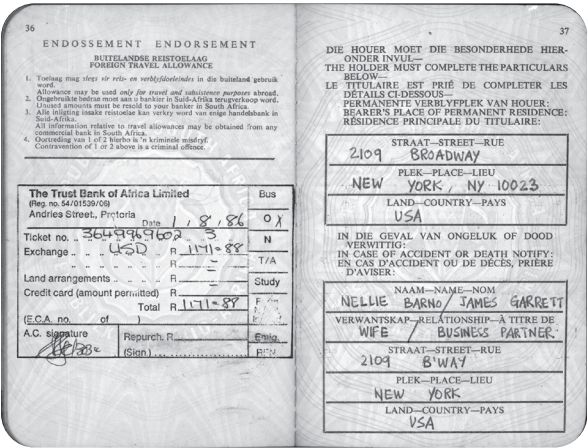 36
ENDOSSEMENT ENDORSEMENT
BUITELANDSE REISTOELAAG
FOREIGN TRAVEL ALLOWANCE
1. Toelaag mag slegs vir reis- en verblyfdoeleindes in die buiteland gebruik
word.
Allowance may be used only for travel and subsistence purposes abroad.
2. Ongebruikte bedrae moet aan 'n bankier in Suid-Afrika terugverkoop word.
Unused amounts must be resold to a banker in South Africa.
3. Alle inligting insake reistoelae kan verkry word van enige handelsbank in
Suid-Afrika.
All information relative to travel allowances may be obtained from any
commercial bank in South Africa.
4. Oortreding van 1 of 2 hierbo is 'n kriminele misdryf.
Contravention of 1 or 2 above is a criminal offence.
The Trust Bank of Africa Limited
(Reg. no. 54/01539/06)
Andries Street, Pretoria
Date 1, 8, 86
Ticket no. 3649969602 3
Exchange USD R 1171=88
R
R
Land arrangements R
Credit card (amount permitted) R
Total R 1171=88
(E.C.A. no. of )
A.C. signature
Repurch. R
(Sign.)
Bus
O X
N
T/A
Study
Emig.
37
DIE HOUER MOET DIE BESONDERHEDE HIER-
ONDER INVUL—
THE HOLDER MUST COMPLETE THE PARTICULARS
BELOW—
LE TITULAIRE EST PRIÉ DE COMPLETER LES
DÉTAILS CI-DESSOUS—
PERMANENTE VERBLYFPLEK VAN HOUER:
BEARER'S PLACE OF PERMANENT RESIDENCE:
RÉSIDENCE PRINCIPALE DU TITULAIRE:
STRAAT—STREET—RUE
2109 BROADWAY
PLEK—PLACE—LIEU
NEW YORK, NY 10023
LAND—COUNTRY—PAYS
USA
IN DIE GEVAL VAN ONGELUK OF DOOD
VERWITTIG:
IN CASE OF ACCIDENT OR DEATH NOTIFY:
EN CAS D'ACCIDENT OU DE DÉCÈS, PRIÈRE
D'AVISER:
NAAM—NAME—NOM
NELLIE BARNO / JAMES GARRETT
VERWANTSKAP—RELATIONSHIP—À TITRE DE
WIFE / BUSINESS PARTNER
STRAAT—STREET—RUE
2109 B'WAY
PLEK—PLACE—LIEU
NEW YORK
LAND—COUNTRY—PAYS
USA